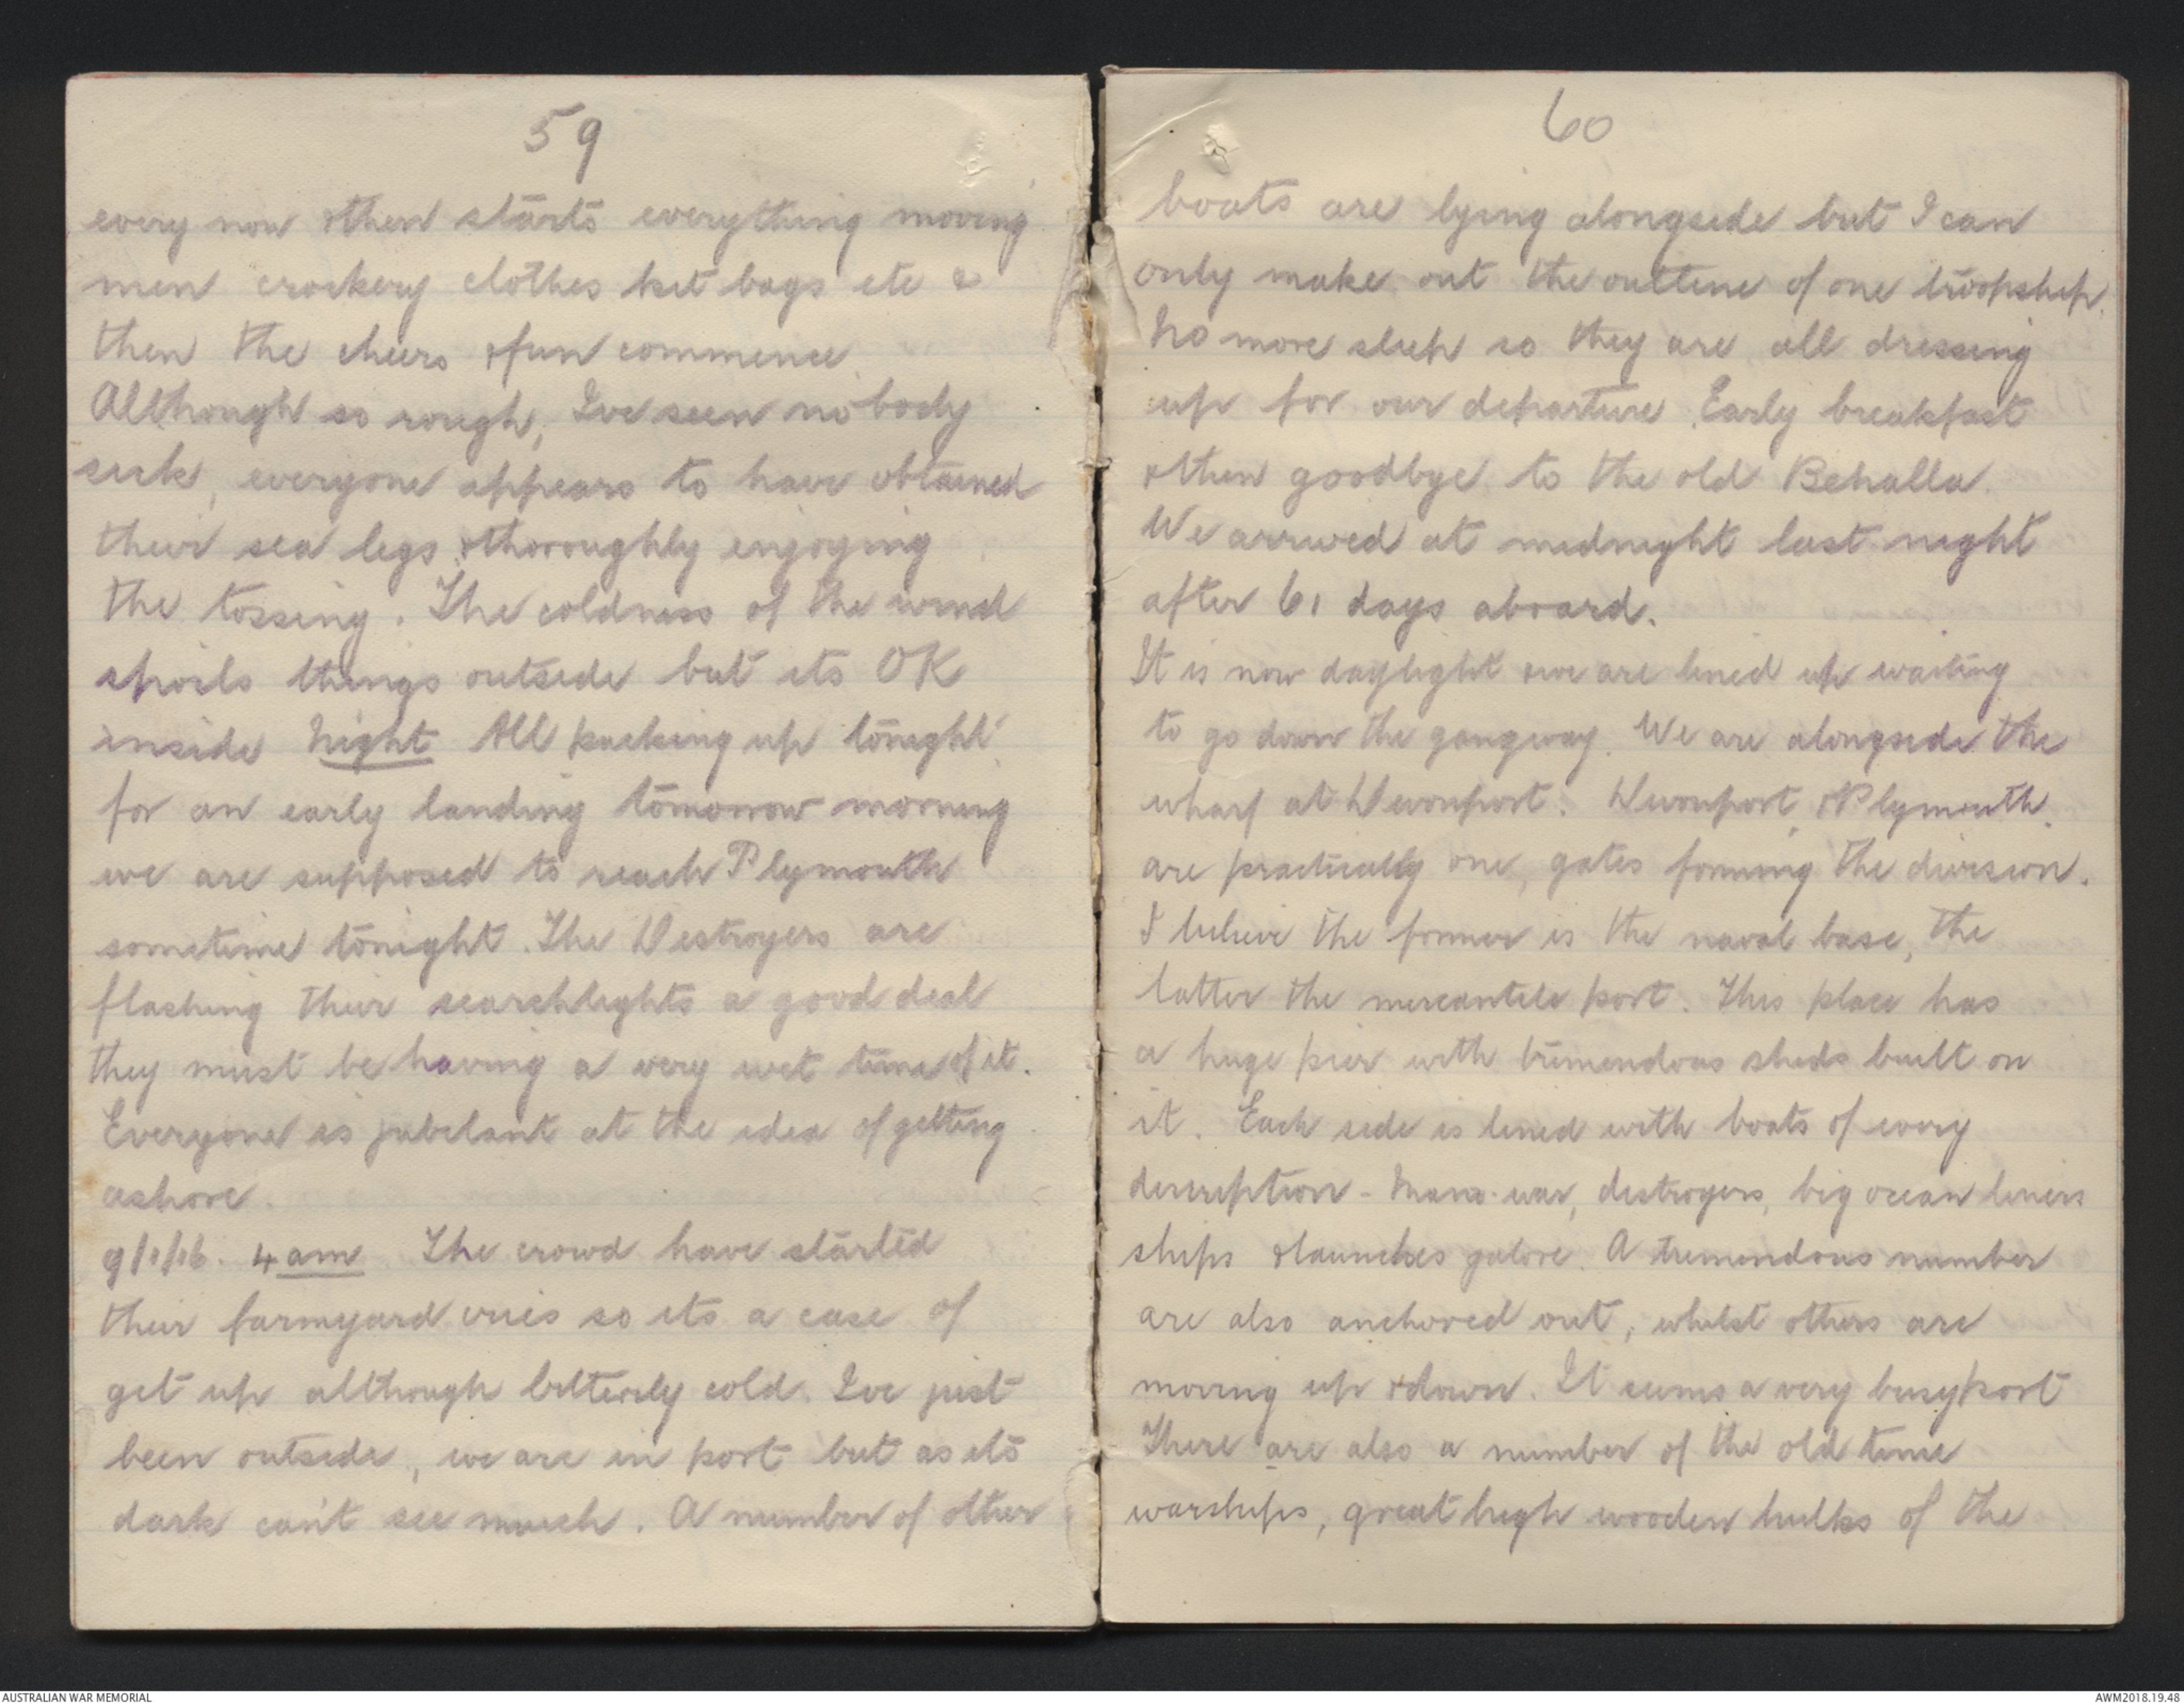 59
every now & then starts everything moving
men crockery clothes kit bags etc &
then the cheers & fun commence.
Although so rough, Ive seen nobody
sick, everyone appears to have obtained
their sea legs & thoroughly enjoying
the tossing. The coldness of the wind
spoils things outside but its OK
inside Night All packing up tonight
for an early landing tomorrow morning
we are supposed to reach Plymouth
sometime tonight. The Destroyers are
flashing their searchlights a good deal
they must be having a very wet time of it.
Everyone is jubilant at the idea of getting
ashore.
9/1/16. 4 am The crowd have started
their farmyard cries so its a case of
get up allthough bitterly cold. Ive just
been outside, we are in port but as its
dark can't see much. A number of other
60
boats are lying alongside but I can
only make out the outline of one troopship.
No more sleep so they are all dressing
up for our departure. Early breakfast
& then goodbye to the old Behalla.
We arrived at midnight last night
after 61 days aboard.
It is now daylight & we are lined up waiting
to go down the gangway. We are alongside the
wharf at Devonport. Devonport & Plymouth
are practically one, gates forming the division.
I believe the former is the naval base, the
latter the mercantile port. This place has
a huge pier with tremendous sheds built on
it. Each side is lined with boats of every
description - Mano-war, destroyers, big ocean liners
ships & launches galore. A tremendous number
are also anchored out, whilst others are
moving up & down. It seems a very busy port
There are also a number of the old time
warships, great high wooden hulks of the
AUSTRALIAN WAR MEMORIAL
AWM2018.19.48